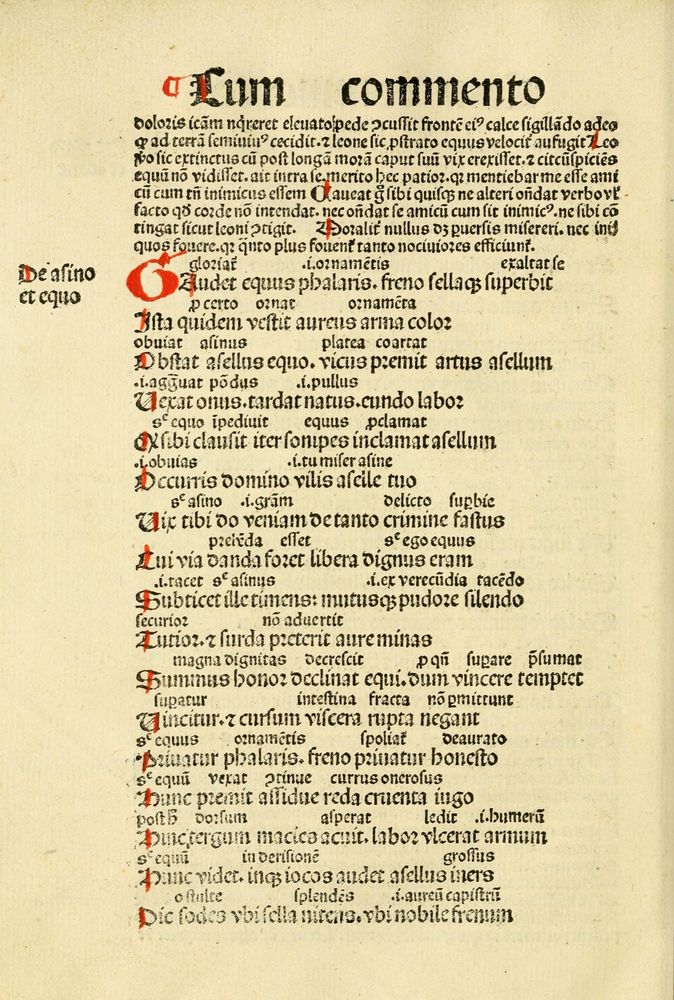 ¶ Cum commento
doloris icām nq̄reret eleuato pede ꝯcussit frontē eiꝰ calce sigillādo adeo
ꝙ ad terrā semiuiuꝰ cecidit. ⁊ leone sic ꝓstrato equus velocit̓ aufugit Leo
ꝟo sic extinctus cū post longā morā caput suū vix erexisset. ⁊ circūspiciēs
equū non vidisset. ait intra se. merito hec patior. qꝛ mentiebar me esse ami
cū cum tn̄ inimicus essem Caueat g̊ sibi quisqꝫ ne alteri oñdat verbo vl̓
facto qd̓ corde nō intendat. nec oñdat se amicū cum sit inimicꝰ. ne sibi cō
tingat sicut leoni ꝯtigit. Moralit̓ nullus dꝫ ꝑuersis misereri. nec iniq̄
quos fouere. qꝛ q̄nto plus fouent̓ tanto nociuiores efficiunt̓.
De asino
et equo
gloriat̓ .i. ornamētis exaltat se
GAudet equus phalaris. freno sellaqꝫ superbit
ꝓ certo ornat ornamēta
Ista quidem vestit aureus arma color
obuiat asinus platea coartat
Obstat asellus equo. vicus premit artus asellum
.i. aggͣuat pōdus .i. pullus
Uexat onus. tardat natus. eundo labor
sꝫ equo īpediuit equus ꝓclamat
Q̇ sibi clausit iter sonipes inclamat asellum
.i. obuias .i. tu miser asine
Occurris domino vilis aselle tuo
sꝫ asino .i. grām delicto suꝑbie
Uix tibi do veniam de tanto crimine fastus
prebēda esset sꝫ ego equus
Cui via danda foret libera dignus eram
.i. tacet sꝫ asinus .i. ex verecūdia tacēdo
Subticet ille timens: mutusqꝫ pudore silendo
securior nō aduertit
Tutior. ⁊ surda preterit aure minas
magna dignitas decrescit ꝓ qn̄ suꝑare p̄sumat
Summus honor declinat equi. dum vincere temptet
suꝑatur intestina fracta nō ꝑmittunt
Uincitur. ⁊ cursum viscera rupta negant
sꝫ equus ornamētis spoliat̓ deaurato
Priuatur phalaris. freno priuatur honesto
sꝫ equū vexat ꝯtinue currus onerosus
Hunc premit assidue reda cruenta iugo
post h̄ dorsum asperat ledit .i. humerū
Hinc tergum macies acuit. labor vlcerat armum
sꝫ equū in derisionē grossus
Hunc videt. inqꝫ iocos audet asellus iners
o stulte splendēs .i. aureū capistrū
Dic sodes vbi sella nitens. vbi nobile frenum